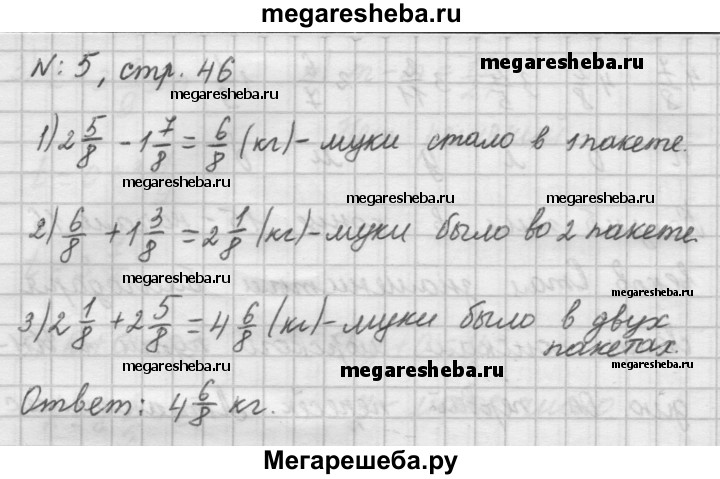 megaresheba.ru
N: 5, стр. 46
megaresheba.ru
megaresheba.ru
1) 2 5/8 - 1 7/8 = 6/8 (кг) - муки стало в 1 пакете.
megaresheba.ru
megaresheba.ru
2) 6/8 + 1 3/8 = 2 1/8 (кг) - муки было во 2 пакете.
megaresheba.ru
megaresheba.ru
3) 2 1/8 + 2 5/8 = 4 6/8 (кг) - муки было в двух
пакетах.
megaresheba.ru
megaresheba.ru
Ответ: 4 6/8 кг.
megaresheba.ru
Мегарешеба.ру